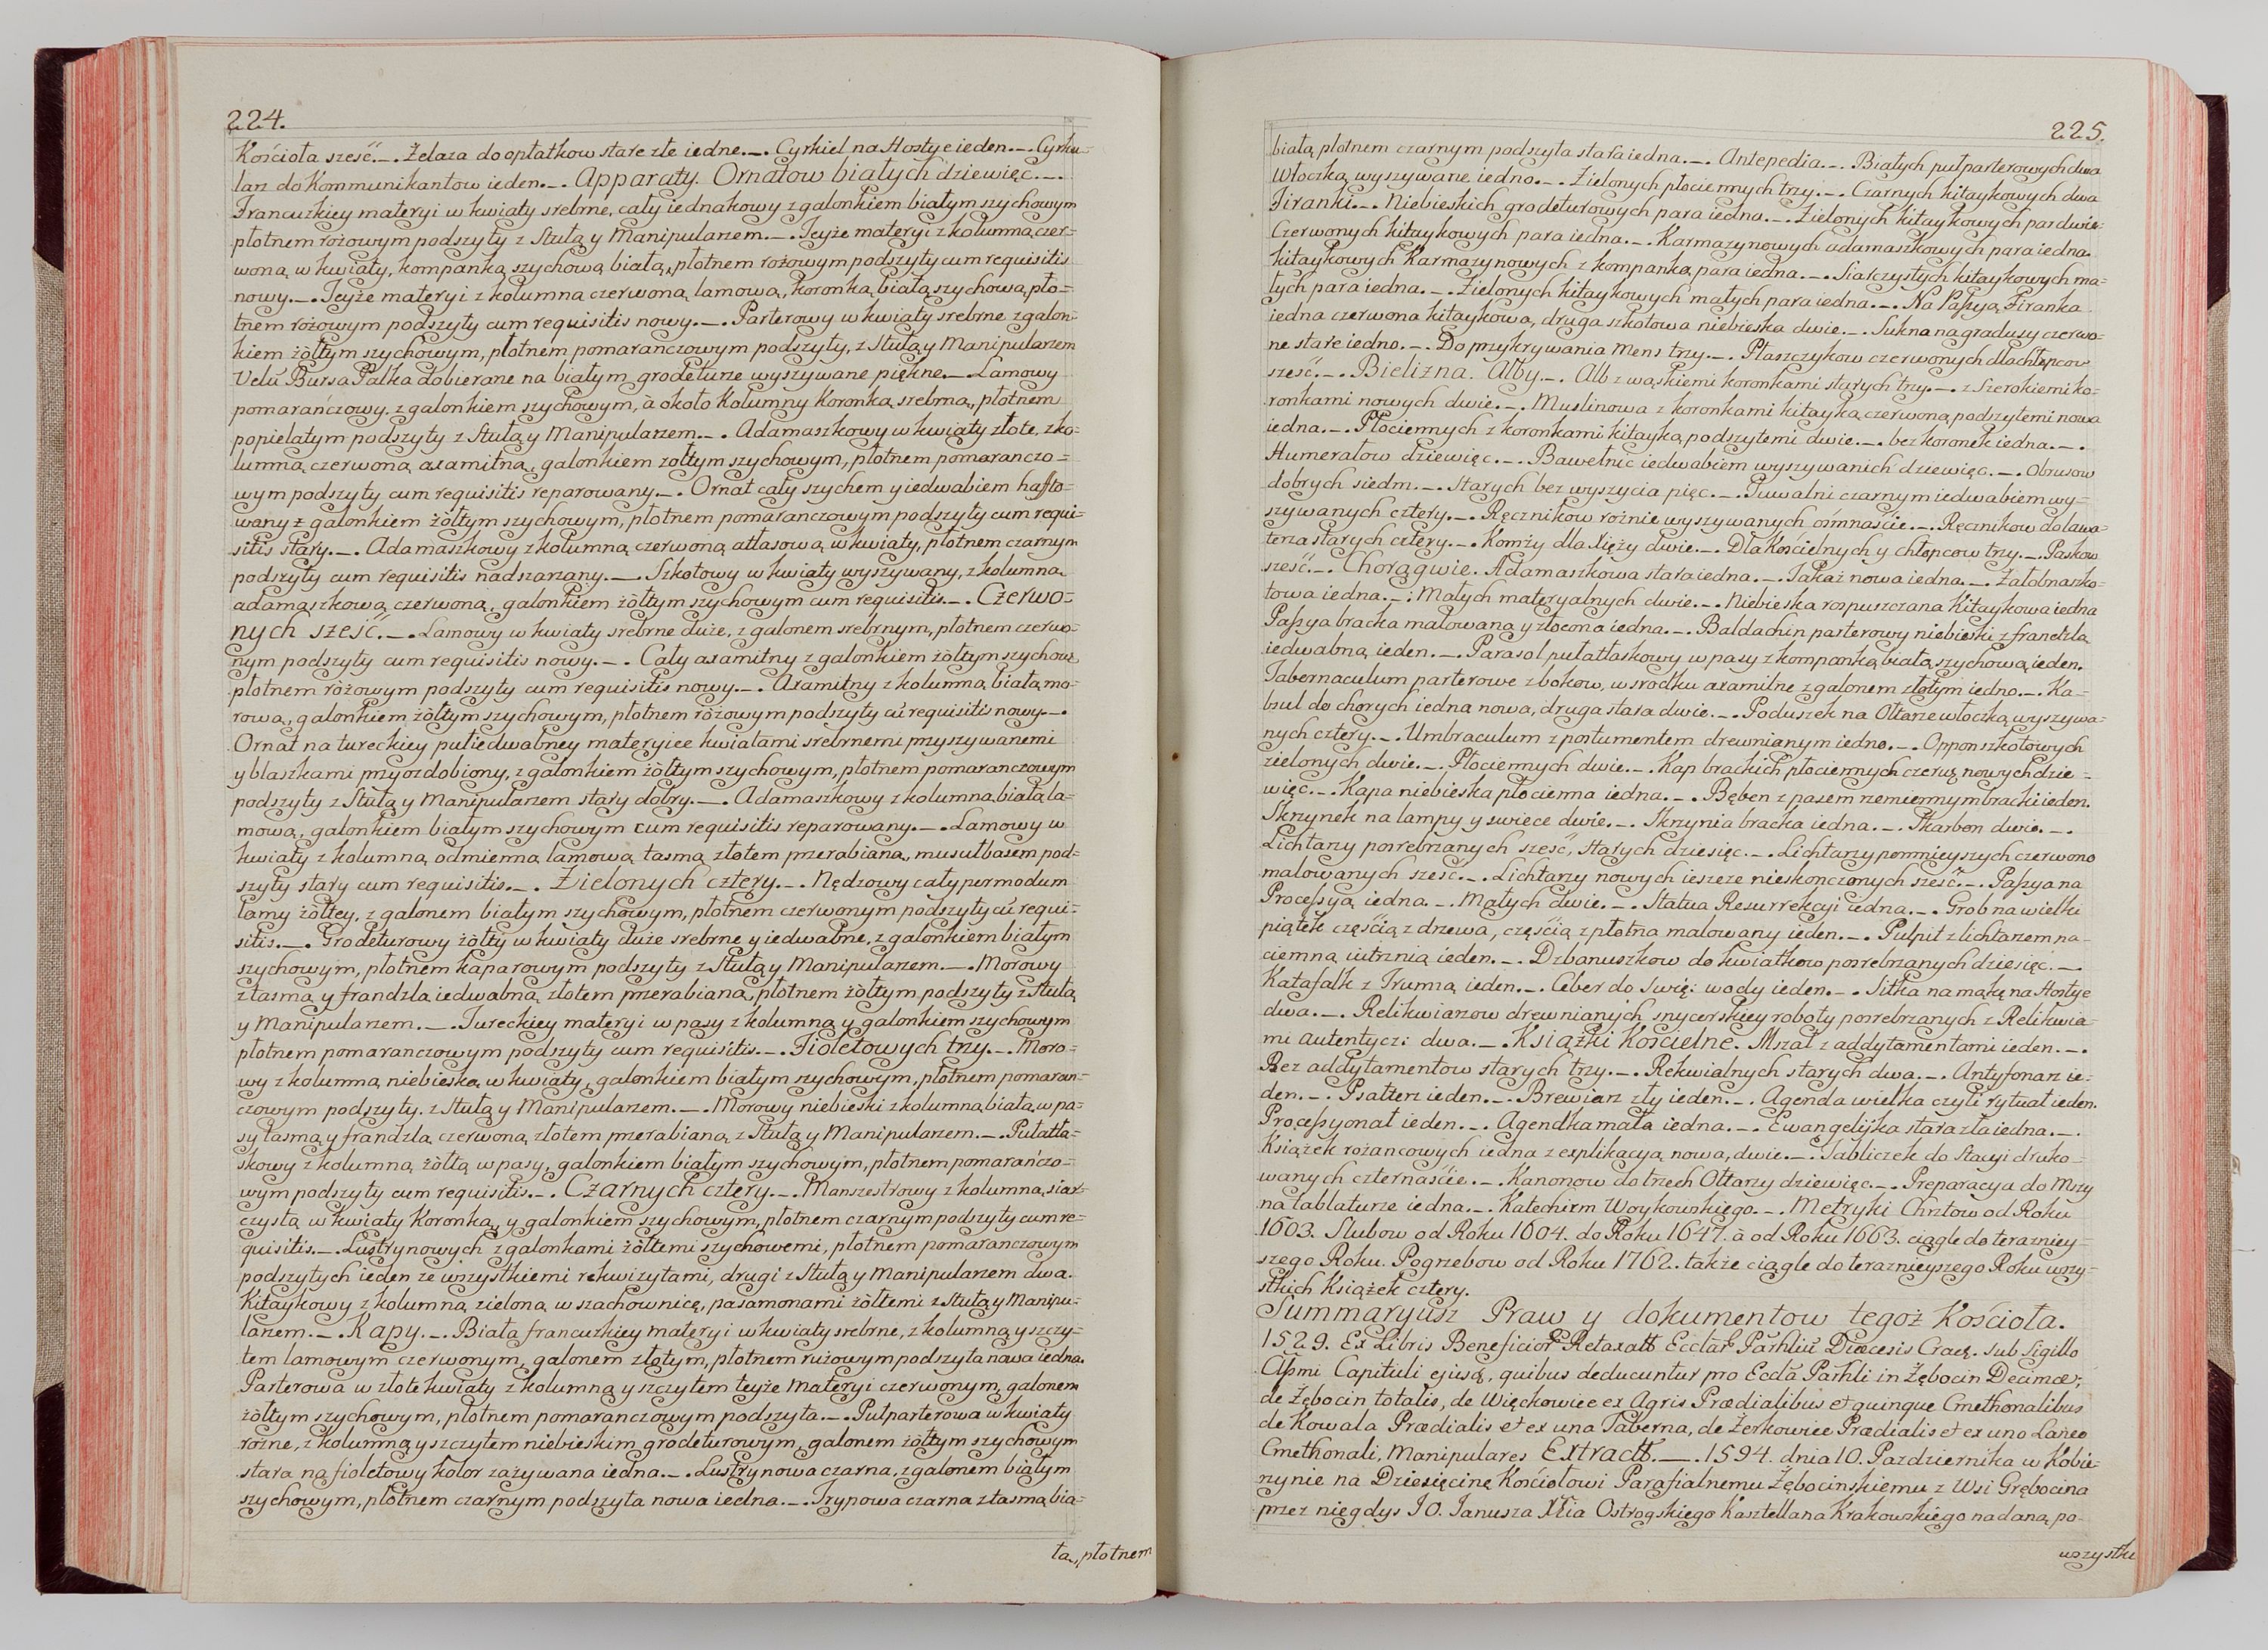 224.
Kościoła sześć._. Żelaza do opłatkow stare złe iedne._. Cyrkiel na Hostye ieden._. Cyrku-
larz do Kommunikantow ieden._. Apparaty. Ornatow białych dziewięc._.
Francuzkiey materyi w kwiaty srebrne, cały iednakowy z galonkiem białym szychowym
płotnem rożowym podszyty z Stułą y Manipularzem._. Teyże materyi z kolumną czer-
woną w kwiaty, kompanką szychową białą, płotnem rożowym podszyty cum requisitis
nowy._. Teyże materyi z kolumną czerwoną lamową, koronką białą szychową, pło=
tnem rożowym podszyty cum requisitis nowy._. Parterowy w kwiaty srebrne z galon-
kiem żółtym szychowym, płotnem pomaranczowym podszyty, z Stułą y Manipularzem
Velū Bursa Palka dobierane na białym grodeturze wyszywane piękne._. Lamowy
pomarańczowy z galonkiem szychowym, à około Kolumny Koronką srebrną, płotnem
popielatym podszyty z Stułą y Manipularzem._. Adamaszkowy w kwiaty złote, z ko-
lumną czerwoną axamitną, galonkiem żołtym szychowym, płotnem pomaranczo=
wym podszyty cum requisitis reparowany._. Ornat cały szychem y iedwabiem hafto-
wany z galonkiem żółtym szychowym, płotnem pomaranczowym podszyty cum requi-
sitis stary._. Adamaszkowy z kolumną czerwoną atłasową w kwiaty, płotnem czarnym
podszyty cum requisitis nadszarzany._. Szkotowy w kwiaty wyszywany, z kolumną
adamaszkową czerwoną, galonkiem żółtym szychowym cum requisitis._. Czerwo=
nych sześć._. Lamowy w kwiaty srebrne duże, z galonem srebrnym, płotnem czerwo-
nym podszyty cum requisitis nowy._. Cały axamitny z galonkiem żółtym szychow:
płotnem różowym podszyty cum requisitis nowy._. Axamitny z kolumną białą mo-
rową, galonkiem żółtym szychowym, płotnem różowym podszyty cū requisitis nowy._.
Ornat na tureckiey pułiedwabney materyi ce kwiatami srebrnemi przyszywanemi
y blaszkami przyozdobiony, z galonkiem żółtym szychowym, płotnem pomaranczowym
podszyty z Stułą y Manipularzem stary dobry._. Adamaszkowy z kolumną białą la-
mową, galonkiem białym szychowym cum requisitis reparowany._. Lamowy w
kwiaty z kolumną odmienną lamową tasmą złotem przerabianą, musułbasem pod-
szyty stary cum requisitis._. Zielonych cztery._. Nędzowy cały per modum
lamy żółtey, z galonem białym szychowym, płotnem czerwonym podszyty cū requi-
sitis._. Grodeturowy żółty w kwiaty duże srebrne y iedwabne, z galonkiem białym
szychowym, płotnem kaparowym podszyty z Stułą y Manipularzem._. Morowy
z tasmą y frandzlą iedwabną złotem przerabianą, płotnem żółtym podszyty z Stułą
y Manipularzem._. Tureckiey materyi w pasy z kolumną y galonkiem szychowym
płotnem pomaranczowym podszyty cum requisitis._. Fioletowych trzy._. Moro=
wy z kolumną niebieską w kwiaty, galonkiem białym szychowym, płotnem pomaran=
czowym podszyty. z Stułą y Manipularzem._. Morowy niebieski z kolumną białą w pa-
sy tasmą y frandzlą czerwoną złotem przerabianą z Stułą y Manipularzem._. Pułatła=
skowy z kolumną żółtą w pasy, galonkiem białym szychowym, płotnem pomarańczo=
wym podszyty cum requisitis._. Czarnych cztery._. Manszestrowy z kolumną siar-
czystą w kwiaty Koronką y galonkiem szychowym, płotnem czarnym podszyty cum re=
quisitis._. Lustrynowych z galonkami żółtemi szychowemi, płotnem pomaranczowym
podszytych ieden ze wszystkiemi rekwizytami, drugi z Stułą y Manipularzem dwa.
Kitaykowy z kolumną zieloną w szachownicę, pasamonami żółtemi z Stułą y Manipu-
larzem._. Kapy._. Biała francuzkiey materyi w kwiaty srebrne, z kolumną y szczy=
tem lamowym czerwonym, galonem złotym, płotnem rużowym podszyta nowa iedna.
Parterowa w złote kwiaty z kolumną y szczytem teyże materyi czerwonym, galonem
żółtym szychowym, płotnem pomaranczowym podszyta._. Pułparterowa w kwiaty
rożne, z kolumną y szczytem niebieskim grodeturowym, galonem żółtym szychowym
stara na fioletowy kolor zażywana iedna._. Lustrynowa czarna, z galonem białym
szychowym, płotnem czarnym podszyta nowa iedna._. Trypowa czarna z tasmą bia=
łą, płotnem
225.
białą, płotnem czarnym podszyta stara iedna._. Antepedia._. Białych pułparterowych dwa
Włoczką wyszywane iedno._. Zielonych płociennych trzy._. Czarnych kitaykowych dwa
Firanki._. Niebieskich grodeturowych para iedna._. Zielonych kitaykowych par dwie.
Czerwonych kitaykowych para iedna._. Karmazynowych adamaszkowych para iedna.
Kitaykowych Karmazynowych z kompanką para iedna._. Siarczystych kitaykowych ma=
łych para iedna._. Zielonych kitaykowych małych para iedna._. Na Paßyą Firanka
iedna czerwona kitaykowa, druga szkotowa niebieska dwie._. Sukna na gradusy czerwo-
ne stare iedno._. Do przykrywania Mens trzy._. Płaszczykow czerwonych dla chłopcow
sześć._. Bielizna. Alby._. Alb z wąskiemi koronkami starych trzy._. z Szerokiemi ko-
ronkami nowych dwie._. Muslinowa z koronkami kitayką czerwoną podszytemi nowa
iedna._. Płociennych z koronkami kitayką podszytemi dwie._. bez koronek iedna._.
Humerałow dziewięc._. Bawełnic iedwabiem wyszywanich dziewięc._. Obrusow
dobrych siedm._. Starych bez wyszycia pięc._. Tuwalni czarnym iedwabiem wy=
szywanych cztery._. Ręcznikow rożnie wyszywanych ośmnaście._. Ręcznikow do lawa-
terza starych cztery._. Komży dla Xięży dwie._. Dla Kościelnych y chłopcow trzy._. Paskow
sześć._. Chorągwie. Adamaszkowa stara iedna._. Takaż nowa iedna._. Żałobna szko-
towa iedna._. Małych materyalnych dwie._. Niebieska rozpuszczana Kitaykowa iedna
Paßya bracka malowana y złocona iedna._. Baldachin parterowy niebieski z frandzlą
iedwabną ieden._. Parasol pułatłaskowy w pasy z kompanką białą szychową ieden.
Tabernaculum parterowe z bokow, w srodku axamitne z galonem złotym iedno._. Ka-
bzul do chorych iedna nowa, druga stara dwie._. Poduszek na Ołtarze włoczką wyszywa=
nych cztery._. Umbraculum z postumentem drewnianym iedno._. Oppon szkotowych
zielonych dwie._. Płociennych dwie._. Kap brackich płociennych czerw. nowych dzie=
więc._. Kapa niebieska płocienna iedna._. Bęben z pasem rzemiennym bracki ieden.
Skrzynek na lampy y swiece dwie._. Skrzynia bracka iedna._. Skarbon dwie._.
Lichtarzy posrebrzanych sześć, starych dziesięc._. Lichtarzy pomnieyszych czerwono
malowanych sześć._. Lichtarzy nowych ieszcze nieskonczonych sześć._. Paßya na
Proceßyą iedna._. Małych dwie._. Statua Resurrekcyi iedna._. Grob na wielki
piątek częścią z drzewa, częścią z płotna malowany ieden._. Pulpit z lichtarzem na-
ciemną iutrznią ieden._. Dzbanuszkow do kwiatkow posrebrzanych dziesięc._.
Katafalk z Trumną ieden._. Ceber do swię: wody ieden._. Sitka na mąkę na Hostye
dwa._. Relikwiarzow drewnianych snycerskiey roboty posrebrzanych z Relikwia-
mi autentycz: dwa._. Książki Koscielne. Mszał z addytamentami ieden._.
Bez addytamentow starych trzy._. Rekwialnych starych dwa._. Antyfonarz ie-
den._. Psałterz ieden._. Brewiarz zły ieden._. Agenda wielka czyli rytuał ieden.
Proceßyonał ieden._. Agendka mała iedna._. Ewangelijka stara zła iedna._.
Książek rożancowych iedna z explikacyą nowa, dwie._. Tabliczek do Stacyi druko-
wanych czternaście._. Kanonow do trzech Ołtarzy dziewięc._. Preparacya do Mszy
na tablaturze iedna._. Katechizm Woykowskiego._. Metryki Chrztow od Roku
1603. Slubow od Roku 1604. do Roku 1647. à od Roku 1663. ciągle do terazniey-
szego Roku. Pogrzebow od Roku 1762. także ciągle do teraznieyszego Roku wszy-
stkich Książek cztery.
Summaryusz Praw y dokumentow tegoż Kościoła.
1529. Ex Libris Beneficior Retaxatt Ecclar Parhliū Diœcesis Crac. sub Sigillo
Aßmi Capituli ejusq, quibus deducuntur pro Eccla Parhli in Zębocin Decimæ,
de Zębocin totalis, de Więckowice ex Agris Prædialibus et quinque Cmethonalibus
de Kowala Prædialis et ex una Taberna, de Żerkowice Prædialis et ex uno Laneo
Cmethonali, Manipulares Extractt._. 1594. dnia 10. Pazdziernika w Kobie-
rzynie na Dziesięcinę Kościołowi Parafialnemu Zębocinskiemu z Wsi Grębocina
przez niegdys J O. Janusza Xcia Ostrogskiego Kasztellana Krakowskiego nadaną po-
wszystki